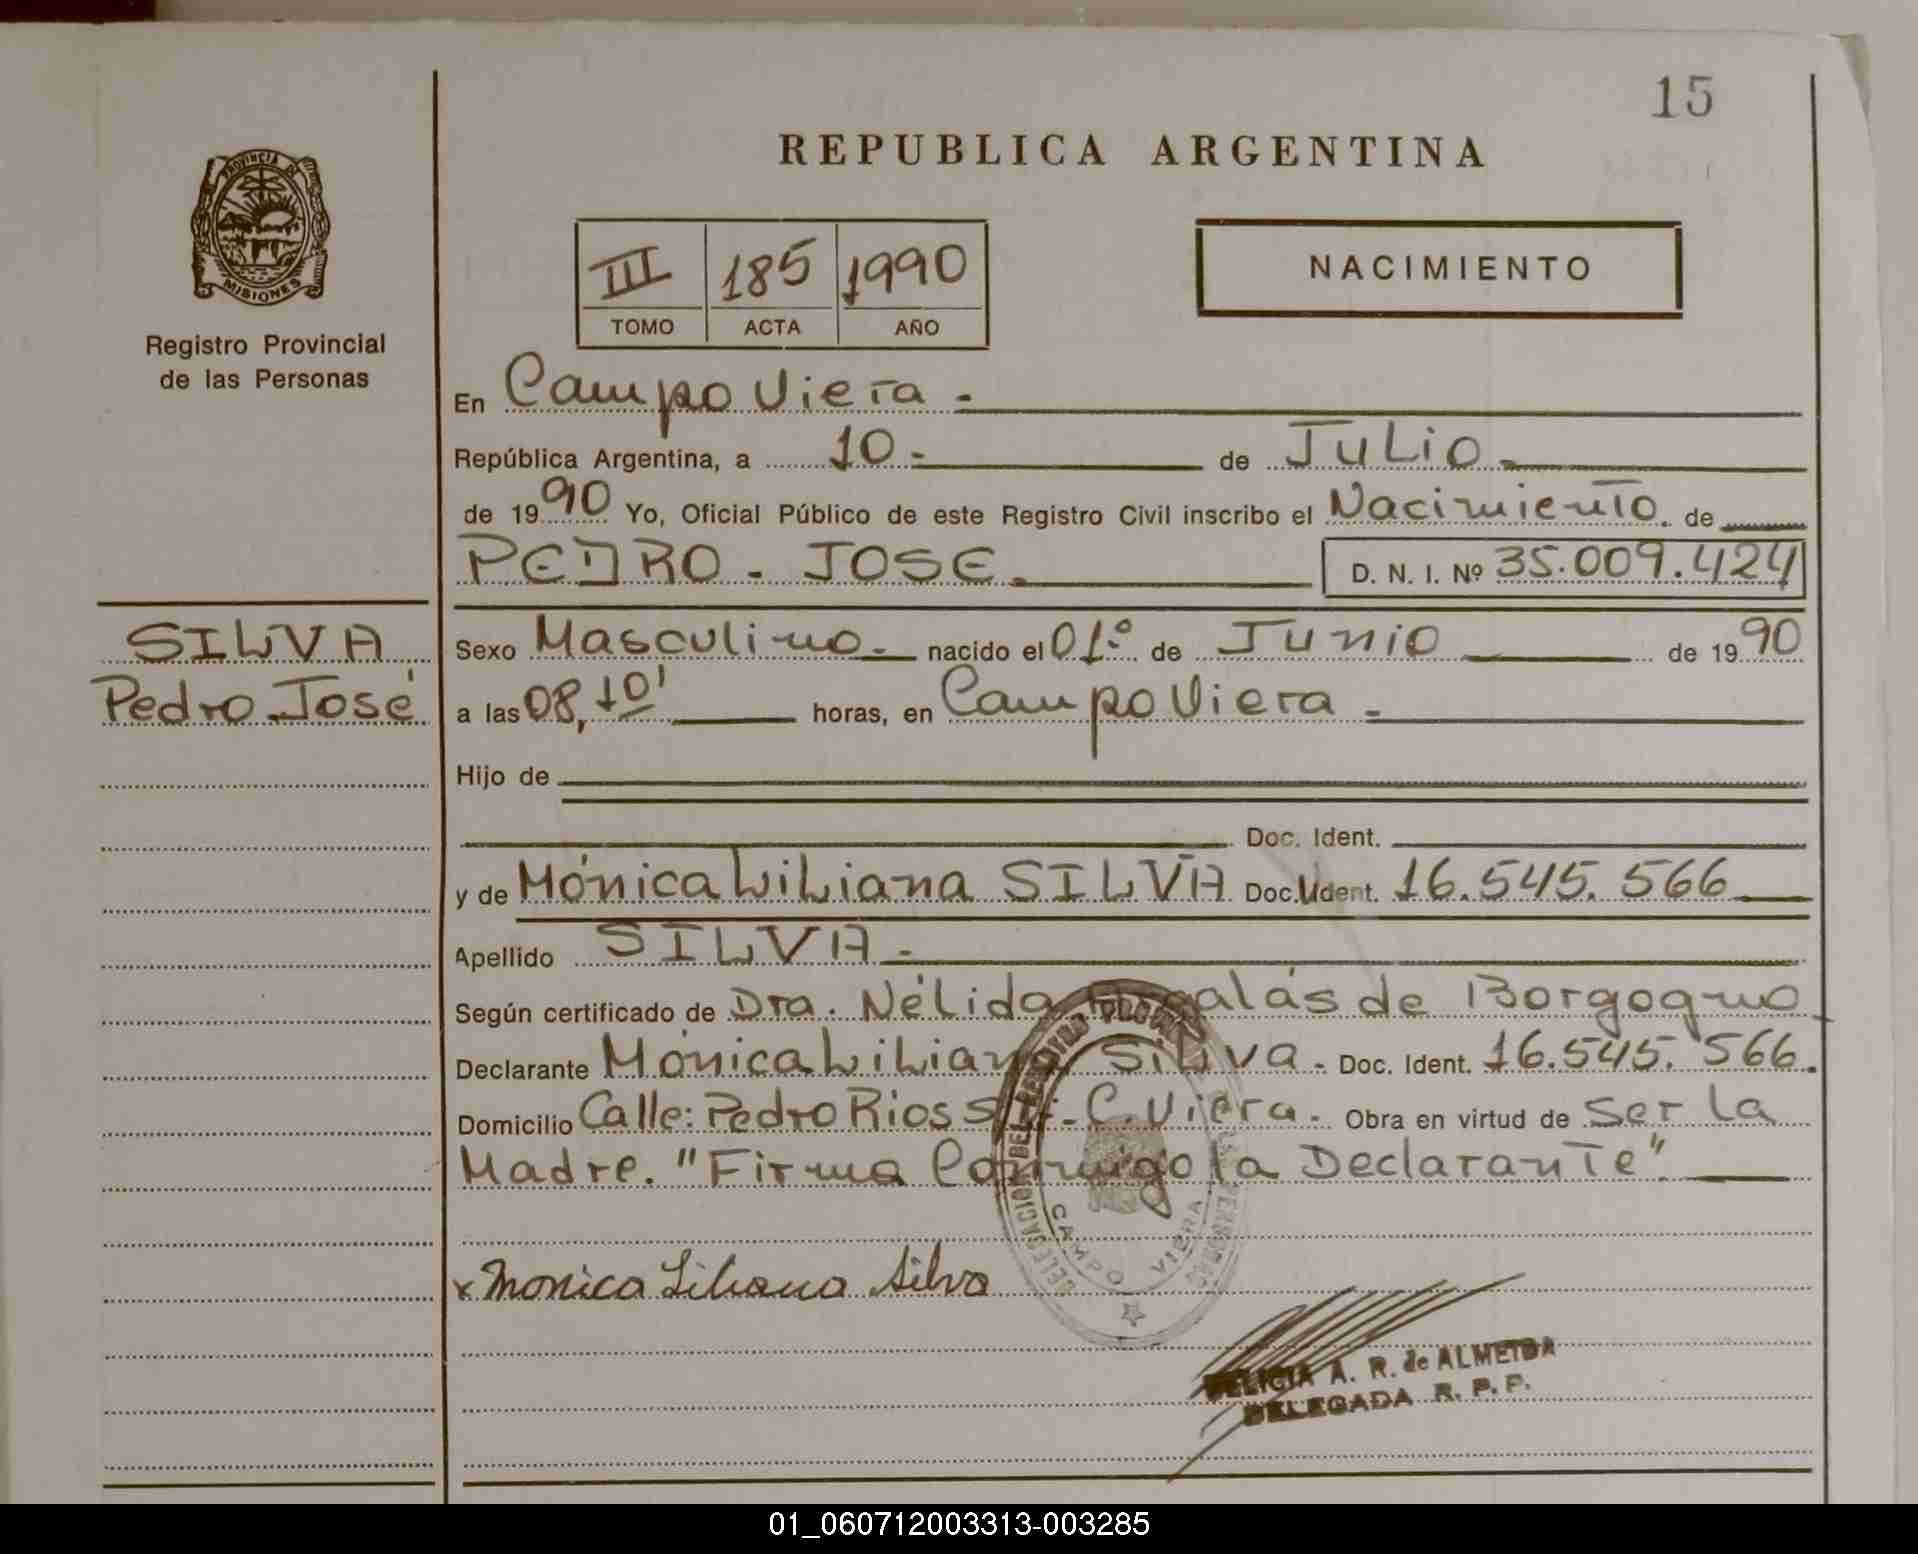 15
REPUBLICA ARGENTINA
PROVINCIA DE
MISIONES
Registro Provincial
de las Personas
III 185 1990
TOMO ACTA AÑO
NACIMIENTO
En Campo Viera.
República Argentina, a 10. de Julio.
de 1990 Yo, Oficial Público de este Registro Civil inscribo el Nacimiento. de
PEDRO. JOSE. D. N. I. Nº 35.009.424
SILVA
Pedro José
Sexo Masculino. nacido el 01º. de Junio de 1990
a las 08,10' horas, en Campo Viera.
Hijo de
Doc. Ident.
y de Mónica Liliana SILVA Doc. Ident. 16.545.566
Apellido SILVA.
Según certificado de Dra. Nélida de Borgogno
Declarante Mónica Liliana Silva. Doc. Ident. 16.545.566.
Domicilio Calle: Pedro Rios S/N. C. Viera. Obra en virtud de Ser la
Madre. "Firma Conmigo la Declarante"
DELEGACION DEL REGISTRO PROVINCIAL DE LAS PERSONAS
CAMPO VIERA
x Monica Liliana Silva
DELICIA A. R. de ALMEIDA
DELEGADA R. P. P.
01_060712003313-003285